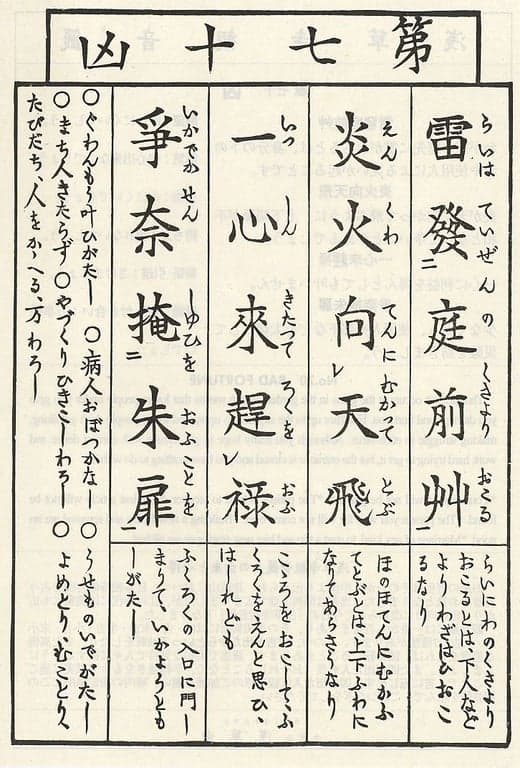 第七十凶
雷發二庭前艸
らいは ていぜん の くさより おこる
らいにわのくさより
おこるとは、下人など
よりわざはひおこ
るなり
炎火向レ天飛
えんくわ てんに むかつて とぶ
ほのほてんにむかふ
てとぶとは、上下ふわに
なりてあらさうなり
一心來趕レ祿
いつしん きたつて ろくを おふ
こころをおこしてふ
くろくをえんと思ひ、
はしれども
爭奈掩二朱扉一
いかでかせん しゆひを おふことを
ふくろくの入口に門し
まりて、いかようとも
しがたし
〇ぐわんもう叶ひがたし 〇病人おぼつかなし 〇うせものいでがたし
〇まち人きたらず 〇やづくりひきこしわろし 〇よめとり、むことり、人
たびだち、人をかゝへる、万わろし